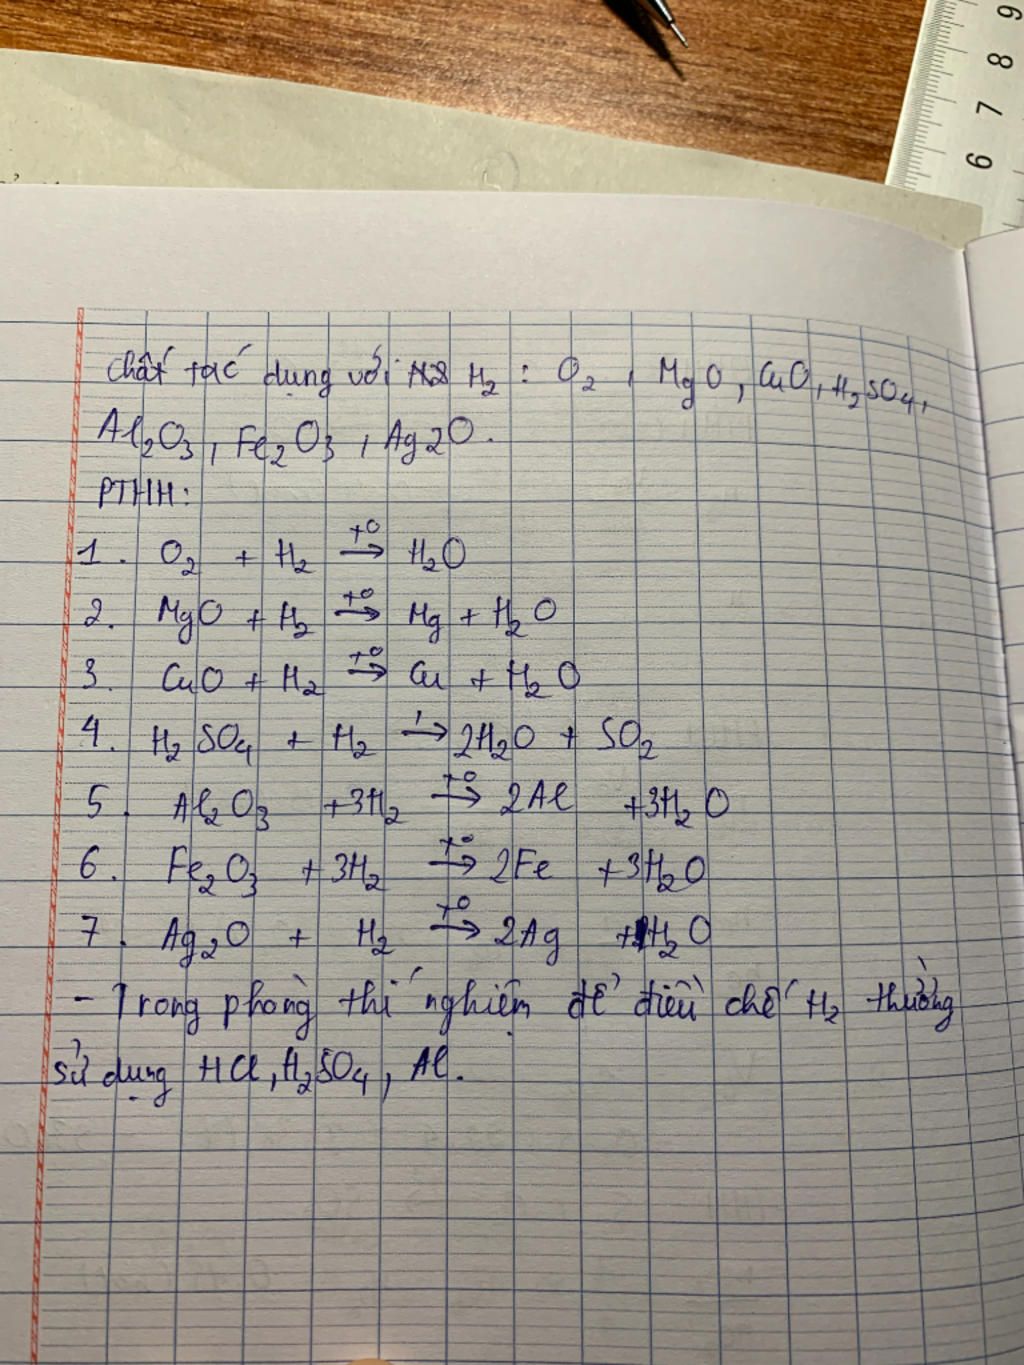 Chất tác dụng với H₂ : O₂ , MgO, CuO, H₂SO₄,
Al₂O₃, Fe₂O₃, Ag2O.
PTHH:
1. O₂ + H₂ →(t°) H₂O
2. MgO + H₂ →(t°) Mg + H₂O
3. CuO + H₂ →(t°) Cu + H₂O
4. H₂SO₄ + H₂ → 2H₂O + SO₂
5. Al₂O₃ +3H₂ →(t°) 2Al +3H₂O
6. Fe₂O₃ +3H₂ →(t°) 2Fe +3H₂O
7. Ag₂O + H₂ →(t°) 2Ag + H₂O
- Trong phòng thí nghiệm để điều chế H₂ thường
sử dụng HCl, H₂SO₄, Al.
9
8
7
6